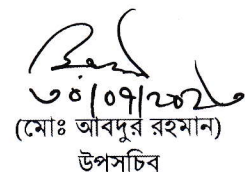 ৩০/০৭/২০২৩
(মোঃ আবদুর রহমান)
উপসচিব